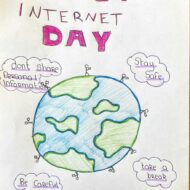 INTERNET
DAY
Dont Share
Personal
Information
Stay
Safe
take a
break
Be Careful